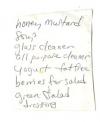 honey mustard
soup
glass cleaner
all purpose cleaner
yogurt - fat free
berries for salad
green salad
dressing